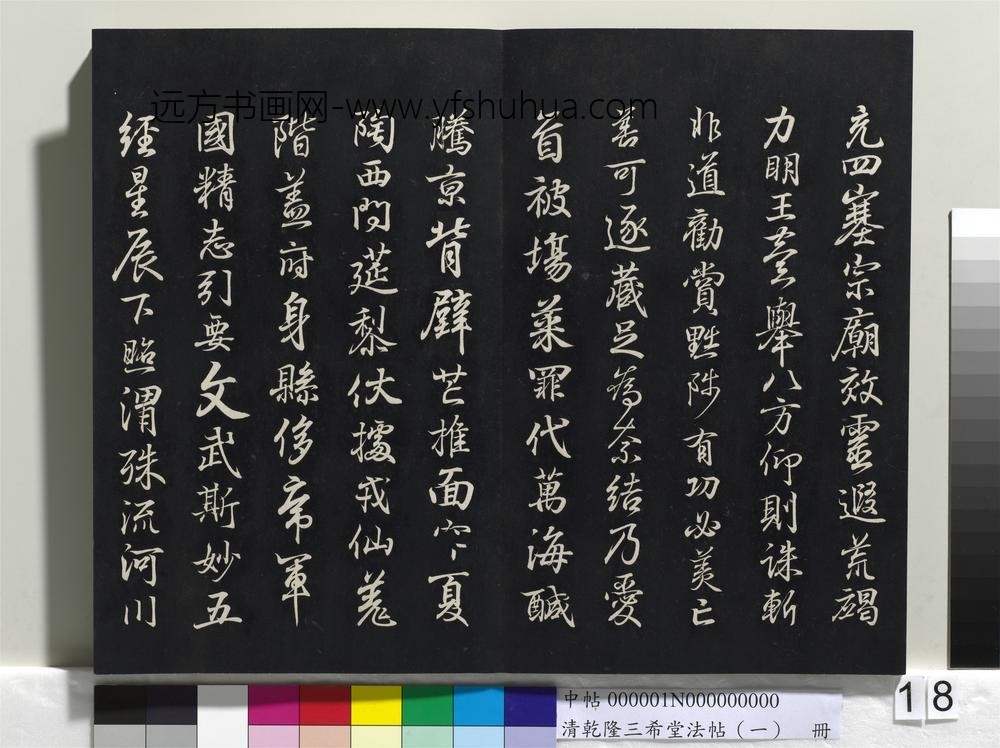 充四塞宗廟效靈遐荒碣
力明王臺舉八方仰則誅斬
非道勸賞黜陟有功必美己
善可逐藏足為奈結乃愛
首被場菜罪代萬海醎
騰京背壁芒推面穴夏
陶西問莚黎伏據戎仙羌
階盖府身縣侈帝軍
國精志引要文武斯妙五
經星辰下照渭殊流河川
远方书画网-www.yfshuhua.com
中帖 000001N000000000
清乾隆三希堂法帖（一） 冊
18